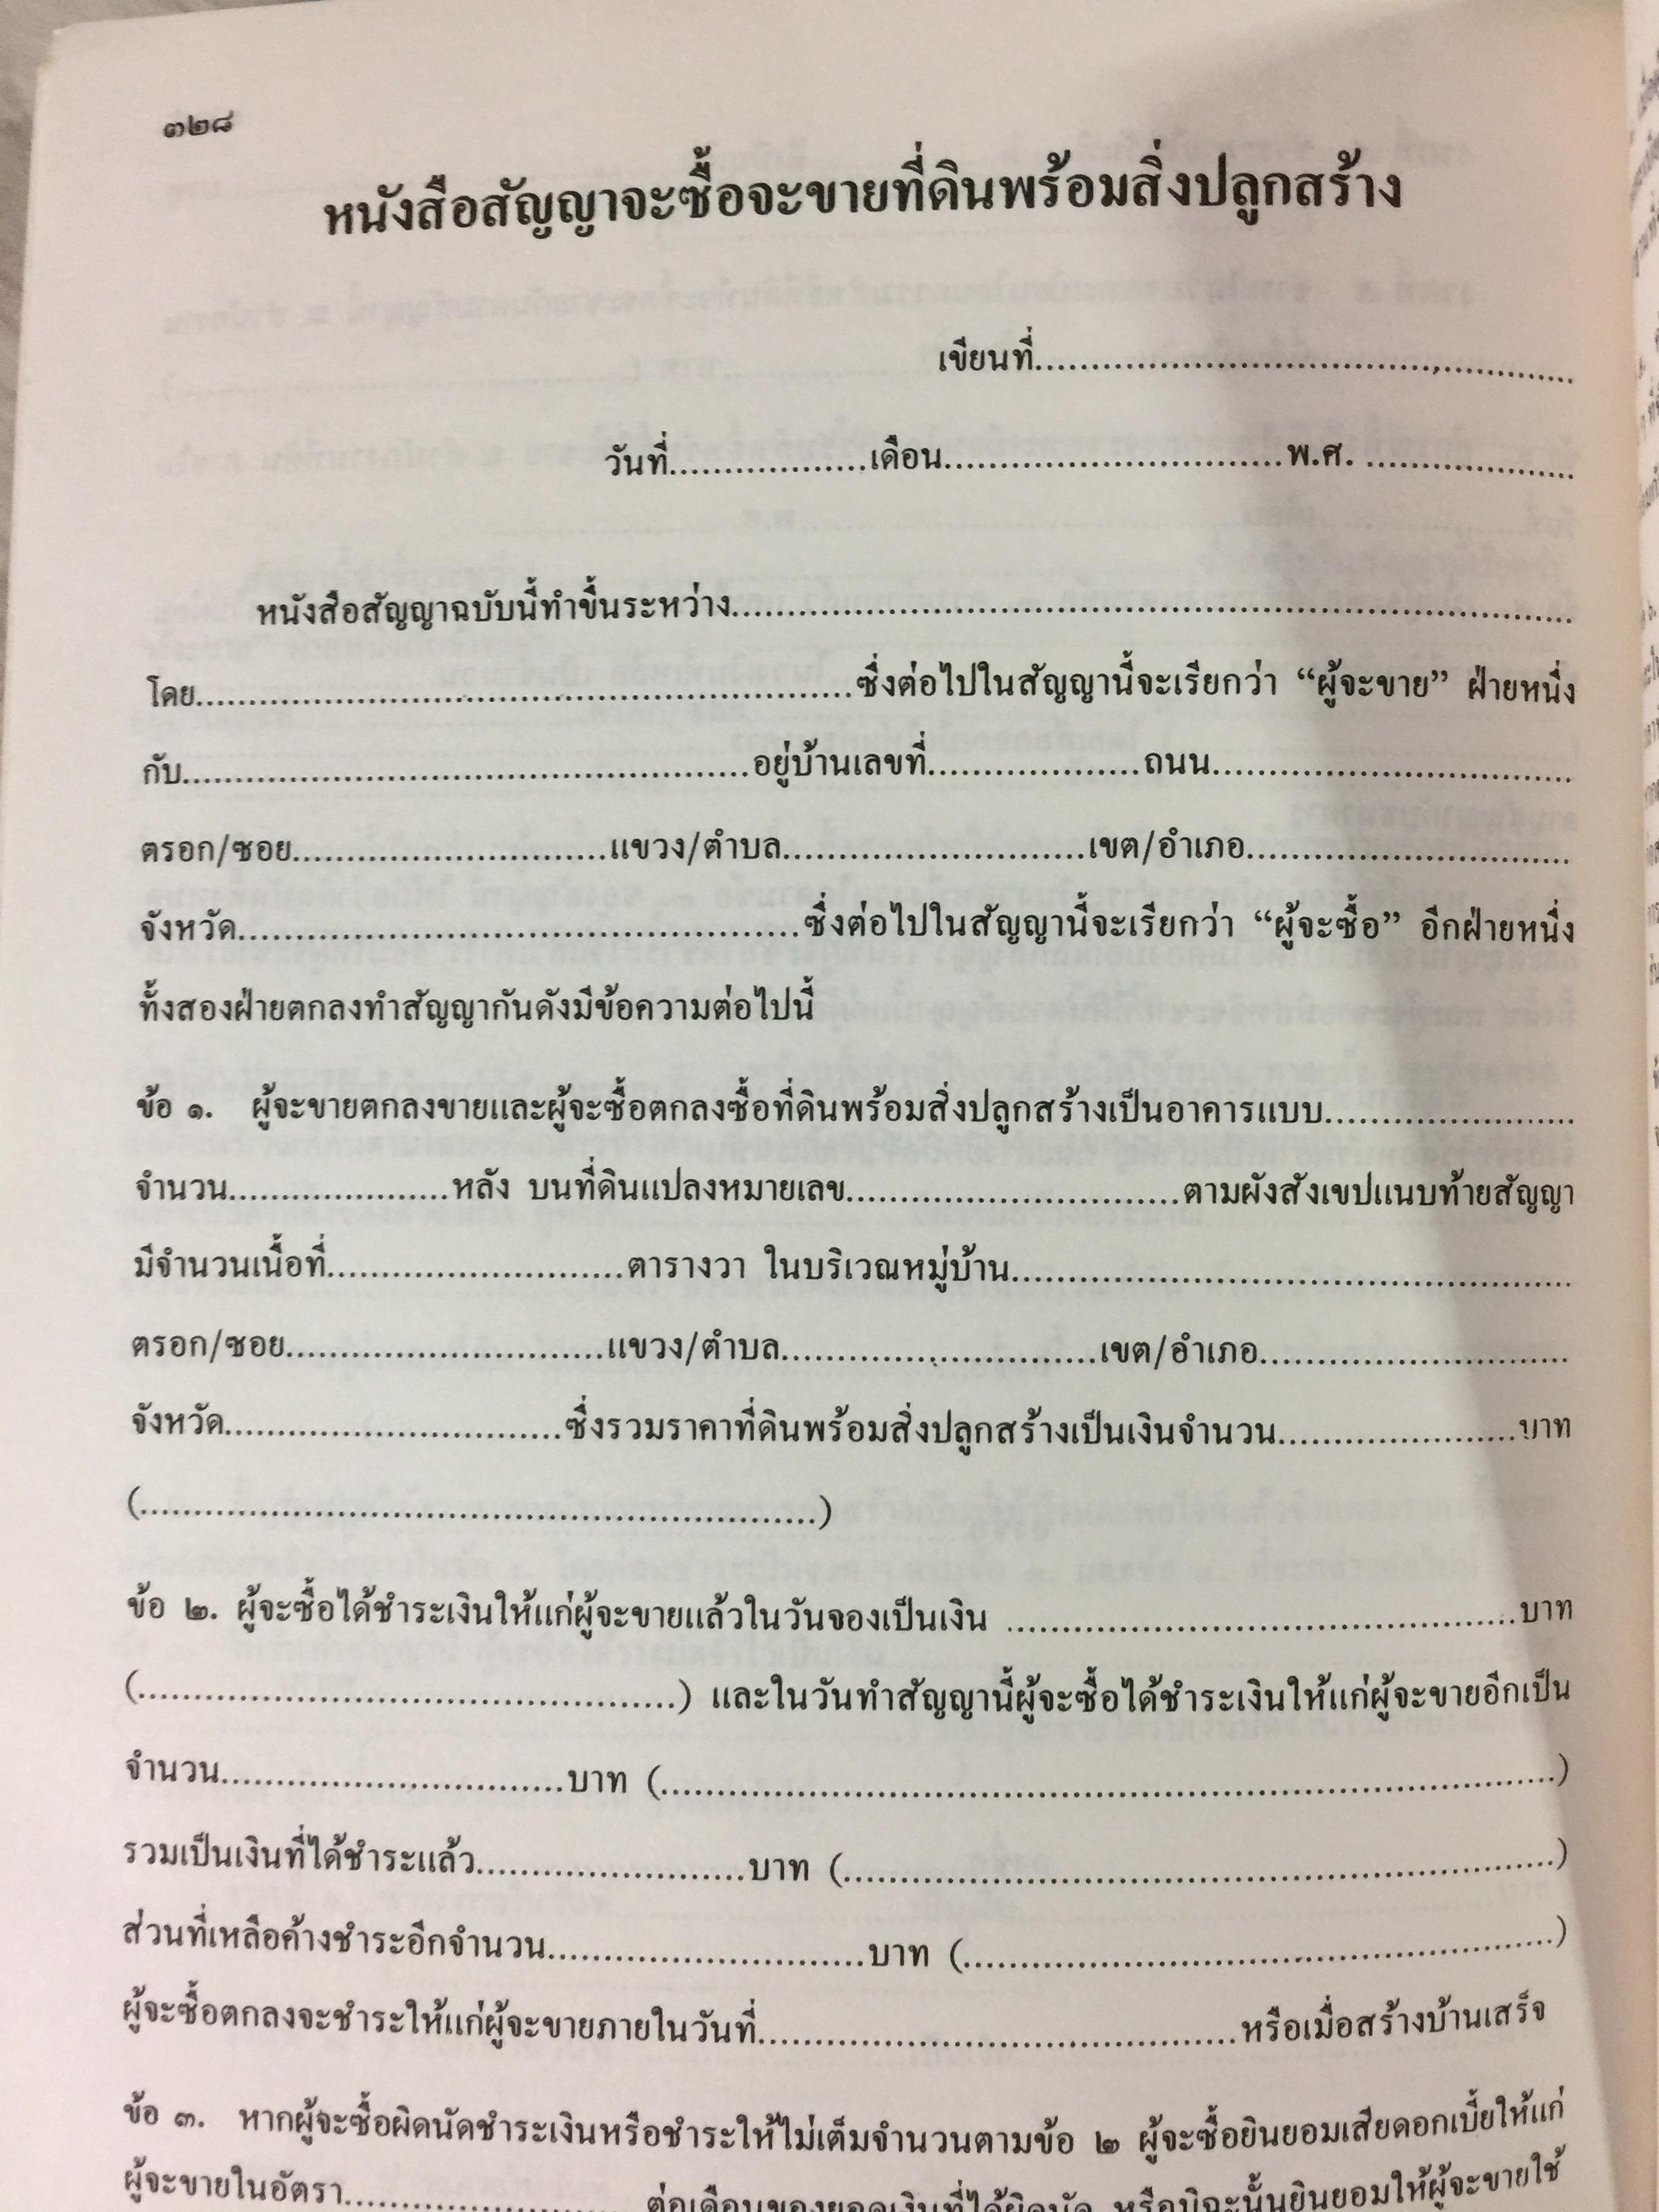 ๓๒๘
หนังสือสัญญาจะซื้อจะขายที่ดินพร้อมสิ่งปลูกสร้าง
เขียนที่................................................
วันที่..................เดือน...............................พ.ศ. ...................
หนังสือสัญญาฉบับนี้ทำขึ้นระหว่าง............................................................................
โดย...........................................................ซึ่งต่อไปในสัญญานี้จะเรียกว่า “ผู้จะขาย” ฝ่ายหนึ่ง
กับ....................................................อยู่บ้านเลขที่...................ถนน.................................
ตรอก/ซอย...............................แขวง/ตำบล............................เขต/อำเภอ.............................
จังหวัด...................................................ซึ่งต่อไปในสัญญานี้จะเรียกว่า “ผู้จะซื้อ” อีกฝ่ายหนึ่ง
ทั้งสองฝ่ายตกลงทำสัญญากันดังมีข้อความต่อไปนี้
ข้อ ๑. ผู้จะขายตกลงขายและผู้จะซื้อตกลงซื้อที่ดินพร้อมสิ่งปลูกสร้างเป็นอาคารแบบ.......................
จำนวน....................หลัง บนที่ดินแปลงหมายเลข..............................ตามผังสังเขปแนบท้ายสัญญา
มีจำนวนเนื้อที่...........................ตารางวา ในบริเวณหมู่บ้าน...................................................
ตรอก/ซอย.............................แขวง/ตำบล.............................เขต/อำเภอ............................
จังหวัด...............................ซึ่งรวมราคาที่ดินพร้อมสิ่งปลูกสร้างเป็นเงินจำนวน......................บาท
(..............................................................)
ข้อ ๒. ผู้จะซื้อได้ชำระเงินให้แก่ผู้จะขายแล้วในวันจองเป็นเงิน ..............................................บาท
(.................................................) และในวันทำสัญญานี้ผู้จะซื้อได้ชำระเงินให้แก่ผู้จะขายอีกเป็น
จำนวน...............................บาท (.................................................................................)
รวมเป็นเงินที่ได้ชำระแล้ว........................บาท (.................................................................)
ส่วนที่เหลือค้างชำระอีกจำนวน............................บาท (.....................................................)
ผู้จะซื้อตกลงจะชำระให้แก่ผู้จะขายภายในวันที่...........................................หรือเมื่อสร้างบ้านเสร็จ
ข้อ ๓. หากผู้จะซื้อผิดนัดชำระเงินหรือชำระให้ไม่เต็มจำนวนตามข้อ ๒ ผู้จะซื้อยินยอมเสียดอกเบี้ยให้แก่
ผู้จะขายในอัตรา.......................... ต่อเดือนของยอดเงินที่ได้ผิดนัด หรือมิฉะนั้นยินยอมให้ผู้จะขายใช้